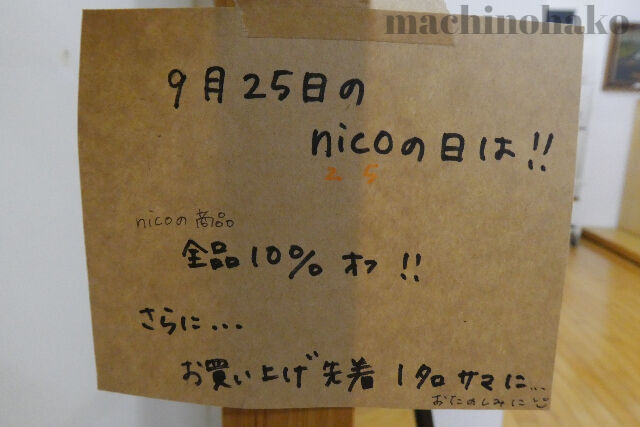 machinohako
9月25日の
nicoの日は!!
2 5
nicoの商品
全品10%オフ!!
さらに...
お買い上げ先着1名サマに...
おたのしみに